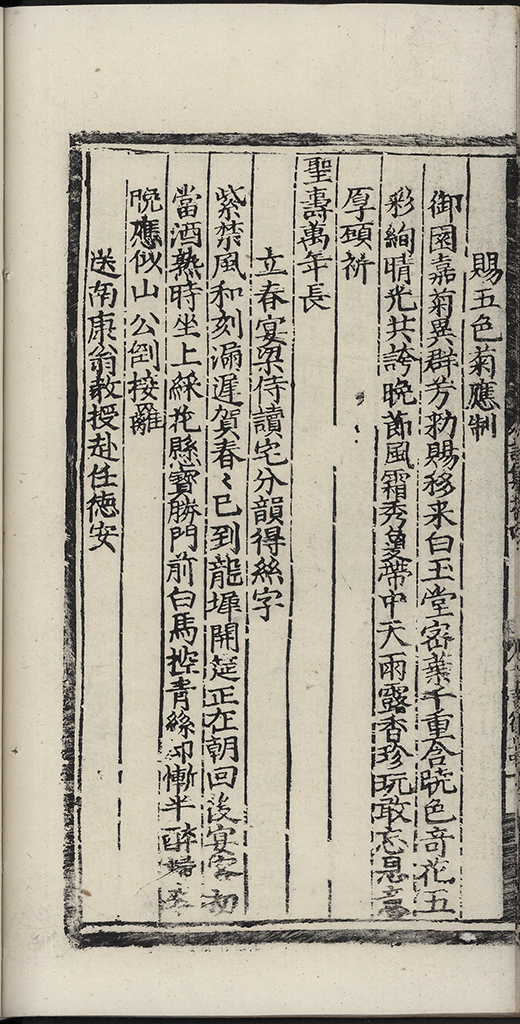 賜五色菊應制
御園嘉菊異群芳勑賜移来白玉堂密葉千重含暁色奇花五
彩絢晴光共誇晚莭風霜秀蔓帶中天雨露香珍玩敢忘恩意
厚頋祈
聖壽萬年長
立春宴梁侍讀宅分韻得絲字
紫禁風和刻漏遲賀春〻已到龍墀開筵正在朝回後宴客初
當酒熟時坐上綵花懸寳勝門前白馬控青絲却慚半醉歸
晩應似山公倒接䍦
送南康翁教授赴任徳安